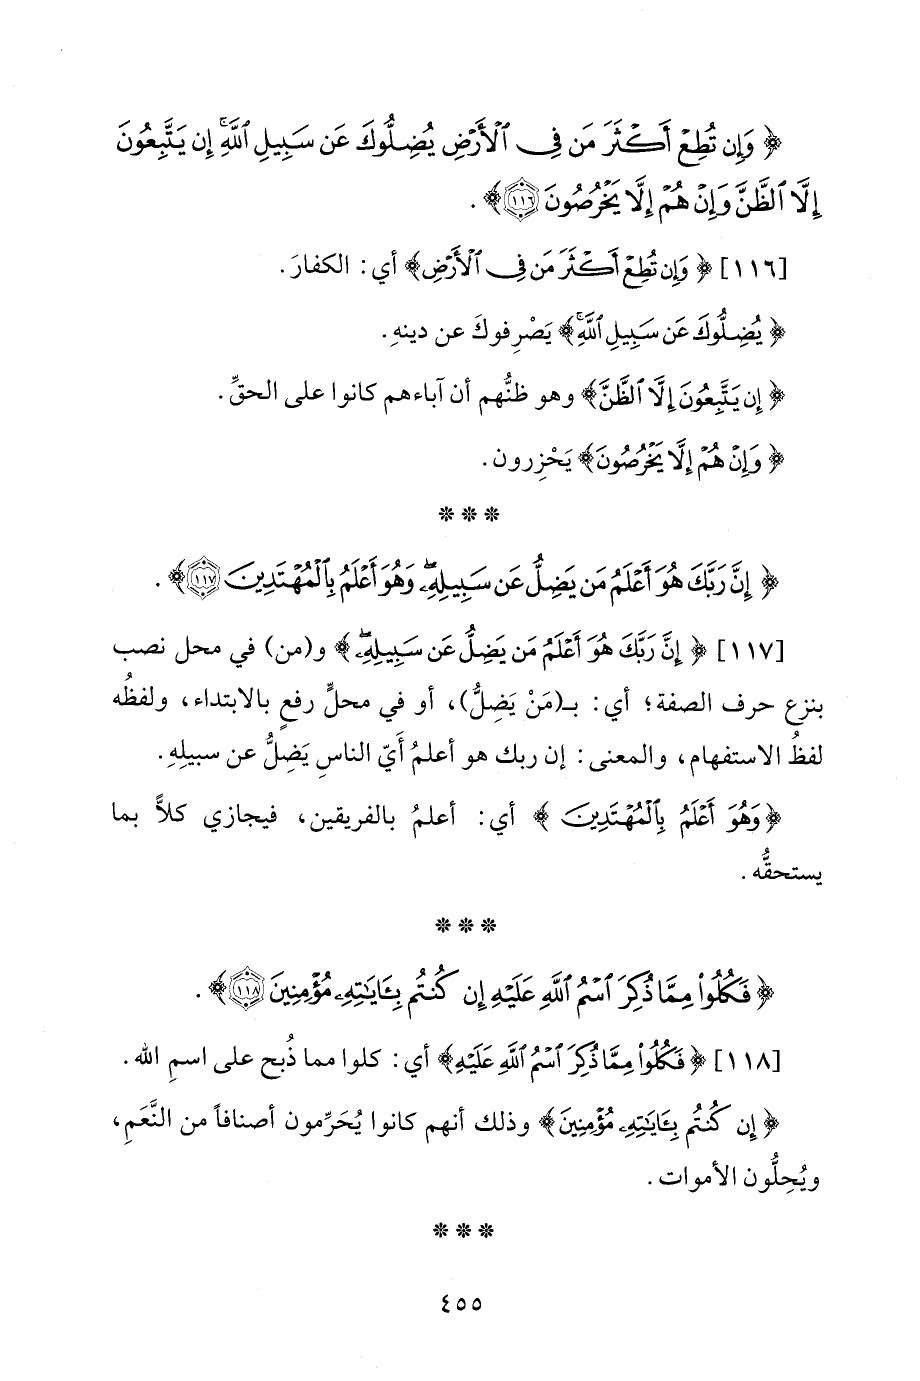 ﴿ وَإِن تُطِعْ أَكْثَرَ مَن فِى ٱلْأَرْضِ يُضِلُّوكَ عَن سَبِيلِ ٱللَّهِ ۚ إِن يَتَّبِعُونَ
إِلَّا ٱلظَّنَّ وَإِنْ هُمْ إِلَّا يَخْرُصُونَ ﴿١١٦﴾ ﴾ .
[١١٦] ﴿ وَإِن تُطِعْ أَكْثَرَ مَن فِى ٱلْأَرْضِ ﴾ أي: الكفارَ.
﴿ يُضِلُّوكَ عَن سَبِيلِ ٱللَّهِ ۚ ﴾ يَصْرِفوكَ عن دينهِ.
﴿ إِن يَتَّبِعُونَ إِلَّا ٱلظَّنَّ ﴾ وهو ظنُّهم أن آباءهم كانوا على الحقِّ.
﴿ وَإِنْ هُمْ إِلَّا يَخْرُصُونَ ﴾ يَحْزِرون.
* * *
﴿ إِنَّ رَبَّكَ هُوَ أَعْلَمُ مَن يَضِلُّ عَن سَبِيلِهِۦ ۖ وَهُوَ أَعْلَمُ بِٱلْمُهْتَدِينَ ﴿١١٧﴾ ﴾ .
[١١٧] ﴿ إِنَّ رَبَّكَ هُوَ أَعْلَمُ مَن يَضِلُّ عَن سَبِيلِهِۦ ۖ ﴾ و(من) في محل نصب
بنزع حرف الصفة؛ أي: بـ(مَنْ يَضِلُّ)، أو في محلِّ رفعٍ بالابتداء، ولفظُه
لفظُ الاستفهام، والمعنى: إن ربك هو أعلمُ أَيّ الناسِ يَضِلُّ عن سبيلِهِ.
﴿ وَهُوَ أَعْلَمُ بِٱلْمُهْتَدِينَ ﴾ أي: أعلمُ بالفريقين، فيجازي كلاًّ بما
يستحقُّه.
* * *
﴿ فَكُلُوا۟ مِمَّا ذُكِرَ ٱسْمُ ٱللَّهِ عَلَيْهِ إِن كُنتُم بِـَٔايَـٰتِهِۦ مُؤْمِنِينَ ﴿١١٨﴾ ﴾ .
[١١٨] ﴿ فَكُلُوا۟ مِمَّا ذُكِرَ ٱسْمُ ٱللَّهِ عَلَيْهِ ﴾ أي: كلوا مما ذُبح على اسمِ الله.
﴿ إِن كُنتُم بِـَٔايَـٰتِهِۦ مُؤْمِنِينَ ﴾ وذلك أنهم كانوا يُحَرِّمون أصنافاً من النَّعَمِ،
ويُحِلُّون الأموات.
* * *
٤٥٥